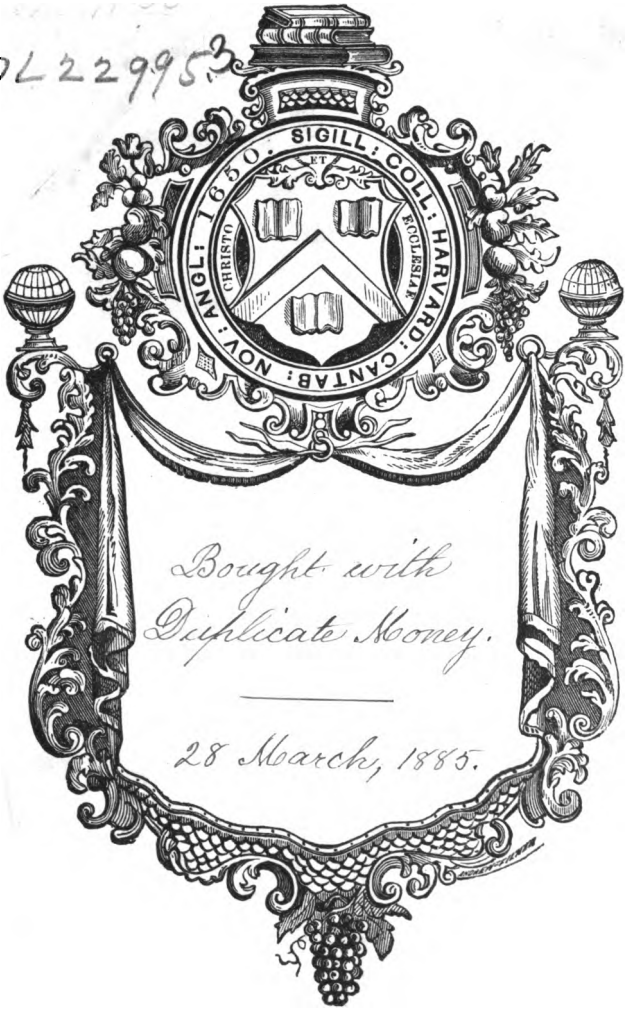 OL 22995.3
SIGILL: COLL: HARVARD: CANTAB: NOV: ANGL: 1650.
ET
CHRISTO
ECCLESIAE
Bought with
Duplicate Money.
28 March, 1885.